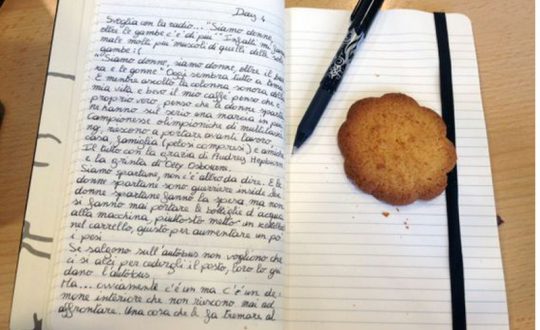 Day 4
Sveglia con la radio... "Siamo donne,
oltre le gambe c'è di più" Infatti mi fanno
male molti più muscoli di quelli delle sole
gambe :(
"Siamo donne, siamo donne, oltre il bra
ra e le gonne" Oggi sembra tutto a tema.
E mentre ascolto la colonna sonora della
mia vita e bevo il mio caffè penso che è
proprio vero, penso che le donne sparta
ne hanno sul serio una marcia in più.
Campionesse olimpioniche di multitask
ing, riescono a portare avanti lavoro,
casa, famiglia (pelosi compresi) e amiche
Il tutto con la grazia di Audrey Hepburn
e la grinta di Ozzy Osbourne.
Siamo spartane, non c'è altro da dire. E le
donne spartane sono guerriere inside. Le
donne spartane fanno la spesa ma non
si fanno mai portare le bottiglie d'acqua
alla macchina, piuttosto mettono un kettlebell
nel carrello, giusto per aumentare un po'
i pesi.
Se salgono sull'autobus non vogliono che
ci si alzi per cedergli il posto, loro lo gui
dano l'autobus.
Ma... ovviamente c'è un ma c'è un de
mone interiore che non riescono mai ad
affrontare. Una cosa che le fa tremare al